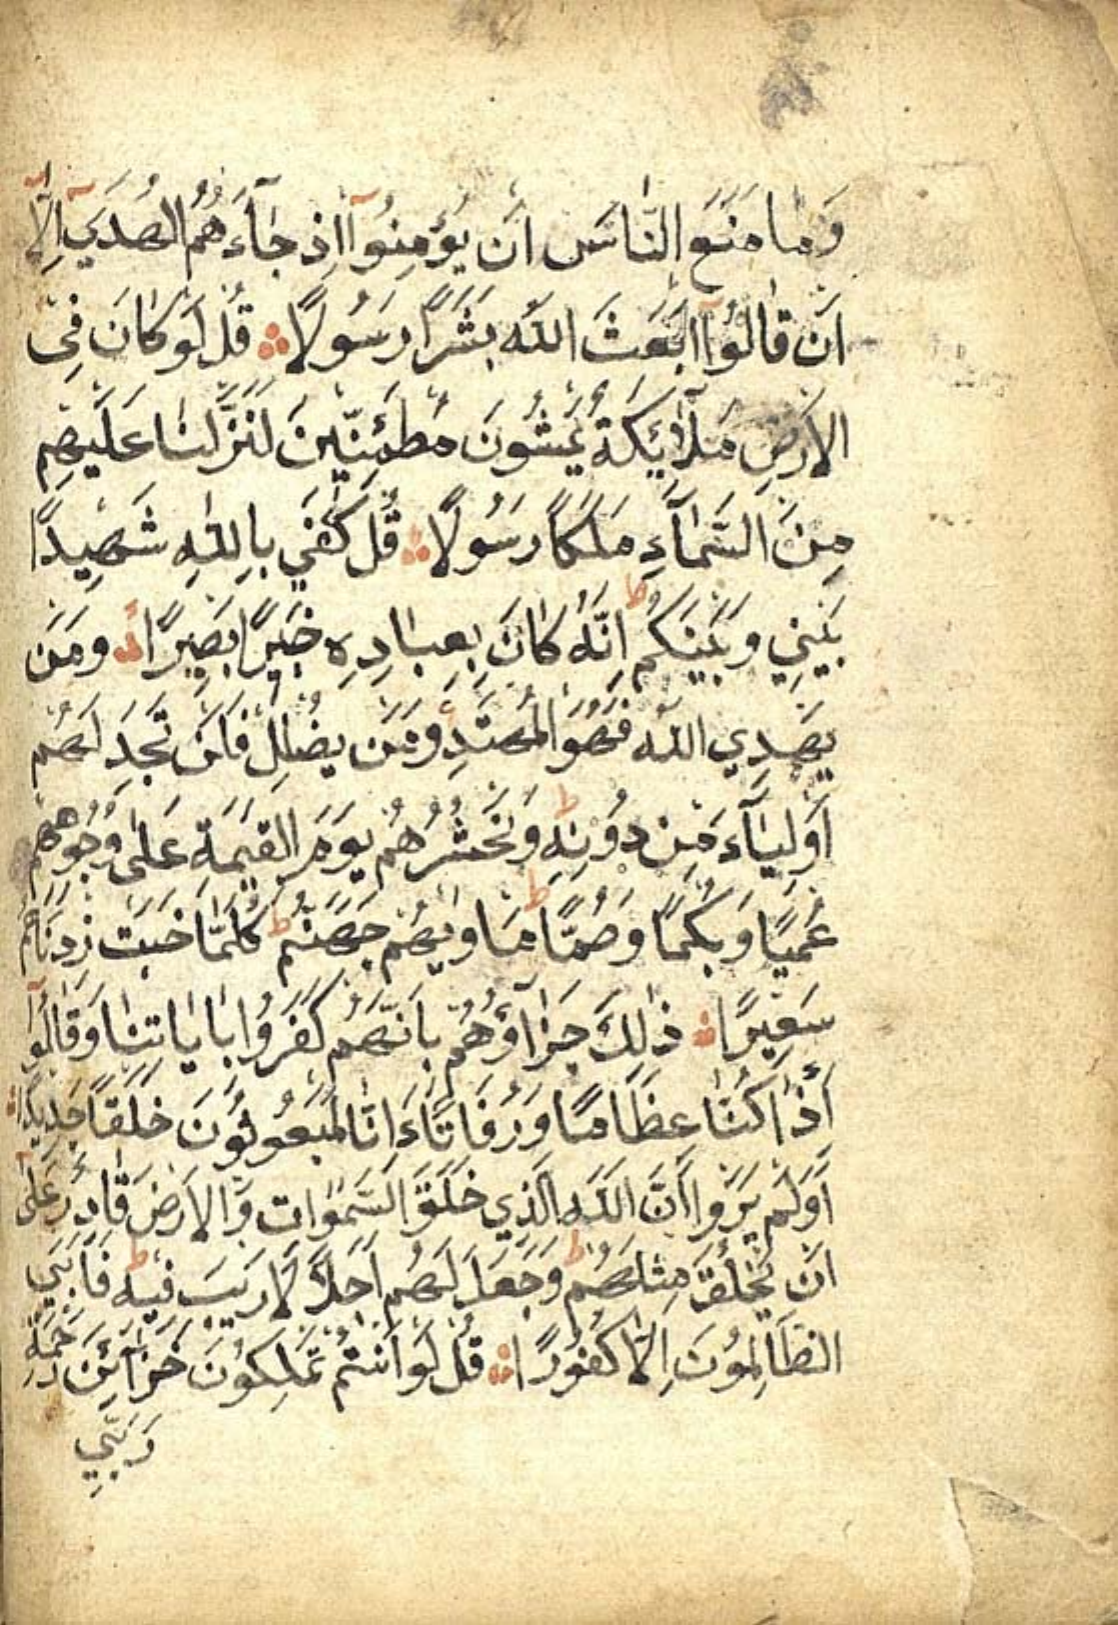 وَمَا مَنَعَ النَّاسَ اَنْ يُؤْمِنُوٓا اِذْ جَآءَهُمُ الْهُدَيٓ اِلَّآ
اَنْ قَالُوٓا اَبَعَثَ اللّٰهُ بَشَرًا رَسُولًا ۞ قُلْ لَوْ كَانَ فِي
الْاَرْضِ مَلٰٓائِكَةٌ يَمْشُونَ مُطْمَئِنِّينَ لَنَزَّلْنَا عَلَيْهِمْ
مِنَ السَّمَآءِ مَلَكًا رَسُولًا ۞ قُلْ كَفٰي بِاللّٰهِ شَهِيدًا
بَيْنِي وَبَيْنَكُمْ ط اِنَّهُ كَانَ بِعِبَادِهِ خَبِيْرًا بَصِيْرًا ۞ وَمَنْ
يَهْدِي اللّٰهُ فَهُوَ الْمُهْتَدِ وَمَنْ يُضْلِلْ فَلَنْ تَجِدَ لَهُمْ
اَوْلِيَآءَ مِنْ دُوْنِهِ ط وَنَحْشُرُهُمْ يَوْمَ الْقِيٰمَةِ عَلٰى وُجُوْهِهِمْ
عُمْيًا وَبُكْمًا وَصُمًّا ط مَاْوٰيهُمْ جَهَنَّمُ ط كُلَّمَا خَبَتْ زِدْنَاهُمْ
سَعِيْرًا ۞ ذٰلِكَ جَزَآؤُهُمْ بِاَنَّهُمْ كَفَرُوْا بِاٰيَاتِنَا وَقَالُوْٓا
أَئِذَا كُنَّا عِظَامًا وَرُفَاتًا ءَاِنَّا لَمَبْعُوثُوْنَ خَلْقًا جَدِيْدًا ۞
اَوَلَمْ يَرَوْا اَنَّ اللّٰهَ الَّذِي خَلَقَ السَّمٰوَاتِ وَالْاَرْضَ قَادِرٌ عَلٰٓى
اَنْ يَخْلُقَ مِثْلَهُمْ ط وَجَعَلَ لَهُمْ اَجَلًا لَا رَيْبَ فِيْهِ ط فَاَبَي
الظَّالِمُوْنَ اِلَّا كُفُوْرًا ۞ قُلْ لَوْ اَنْتُمْ تَمْلِكُوْنَ خَزَآئِنَ رَحْمَةِ
رَبِّي